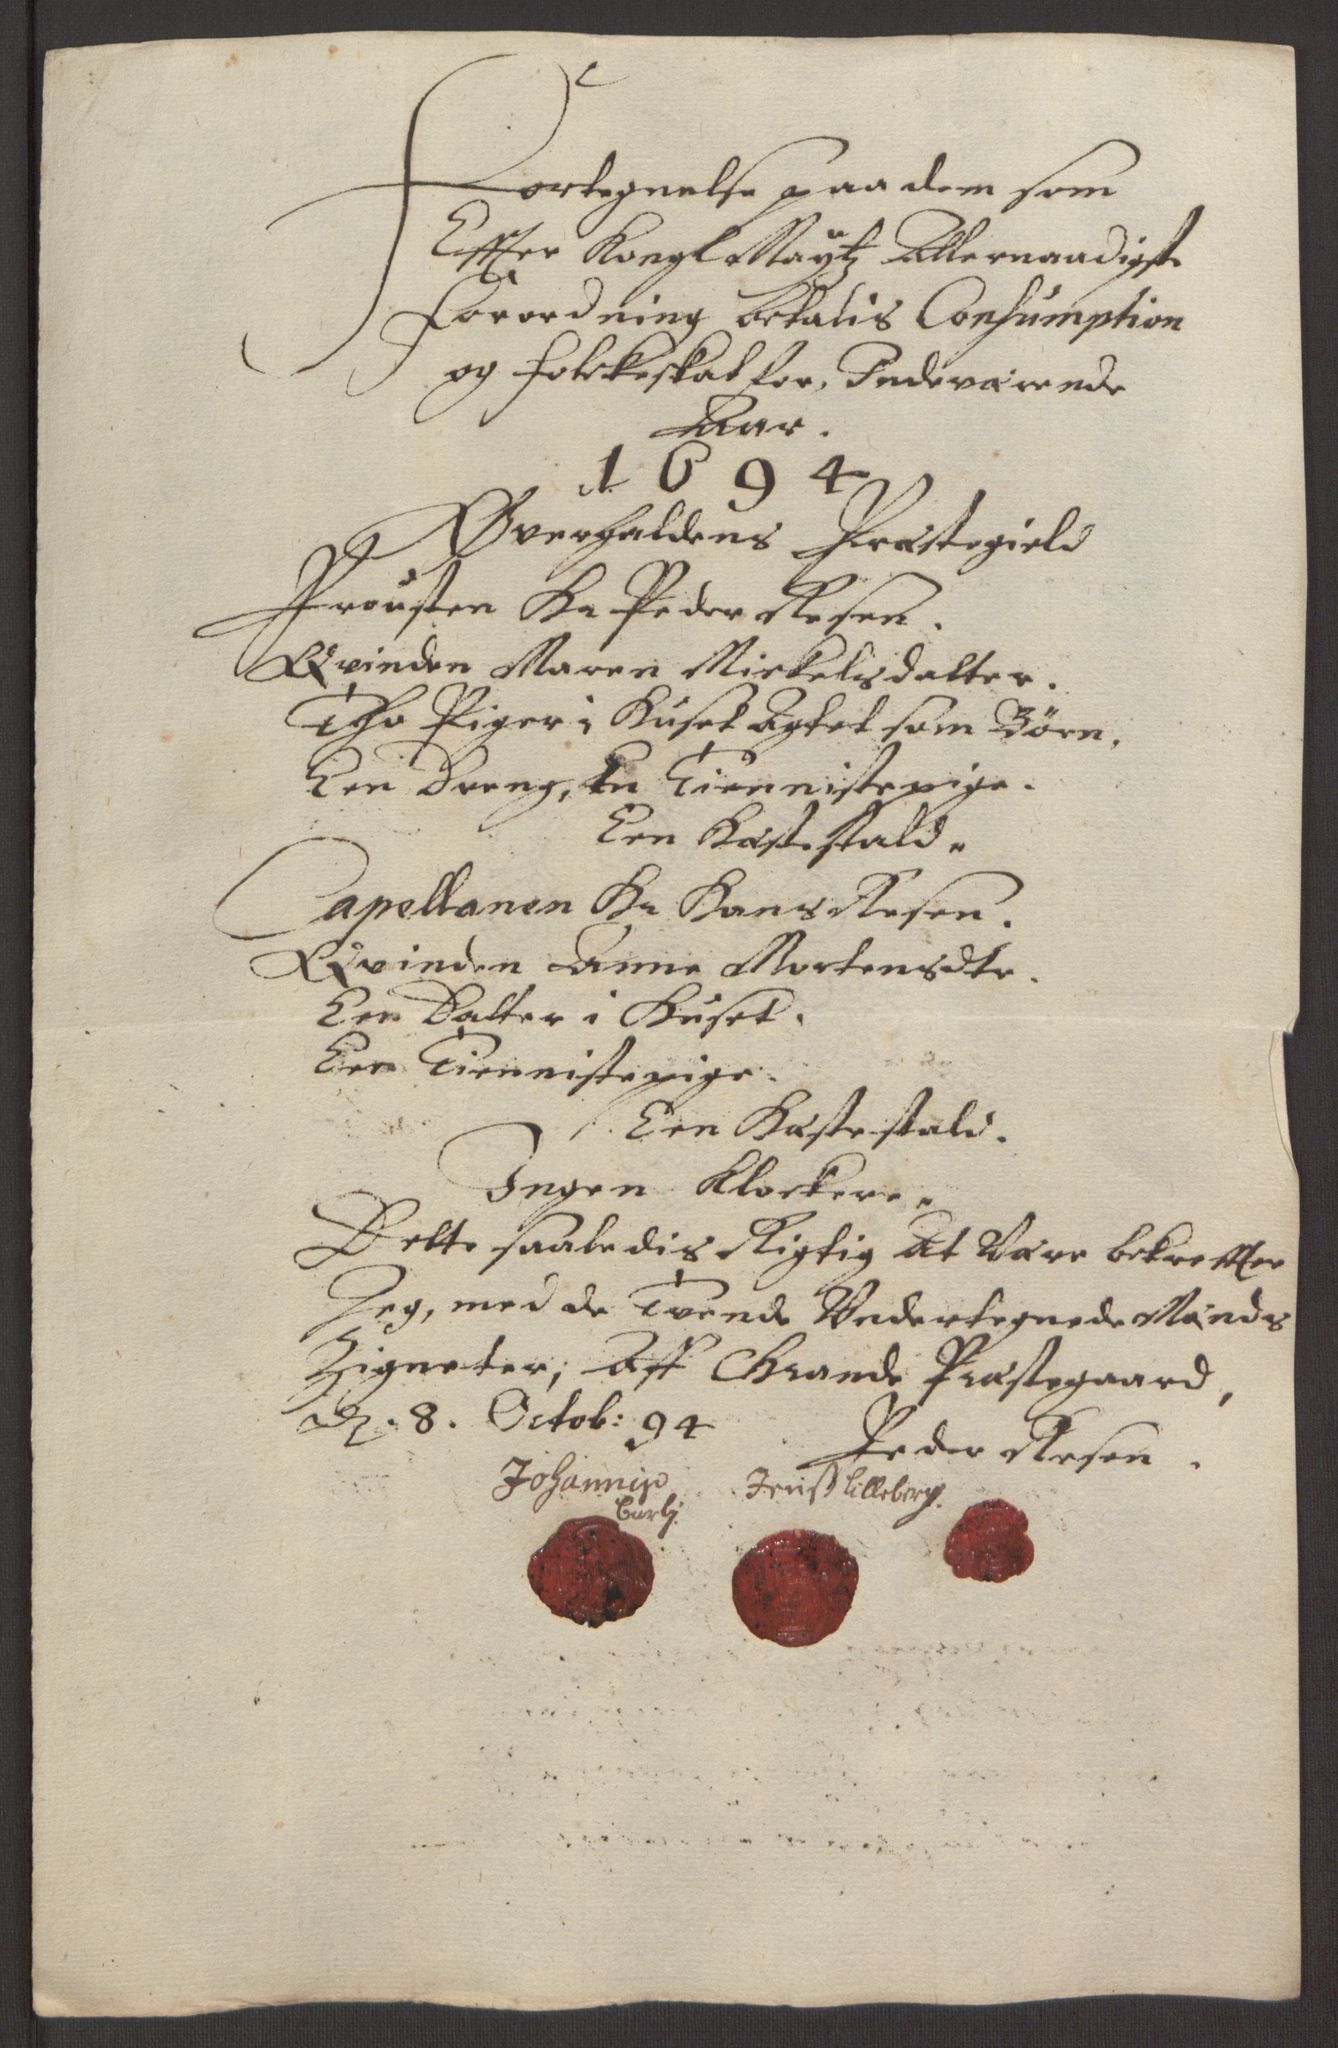 Fortegnelse paa dem som
Effter Kongl Maÿtz Allernaadigste
Forordning betalis Consumption
og Folckeskat for, Indeværende
Aar.
1694
Øfverhaldens Præstegield
Proùsten Hr Peder Resen.
Qvinden Maren Mickelsdatter.
Tho Piger i Hùset Agtet som Börn.
Een Dreng, En Tiennistepige.
Een Hæstestald.
Capellanen Hr Hans Resen.
Qvinden Anne Mortensdtr.
Een Datter i Hùset.
Een Tiennistepige.
Een Hæstestald.
Ingen Klockere.
Dette saaledis Rigtig At Være bekreffter
Jeg, med de Tvende Undertegnede Mænds
Zigneter; Aff Grande Præstegaard,
d. 8. Octob: 94
Peder Resen.
Johannis Jensß Lilleberg.